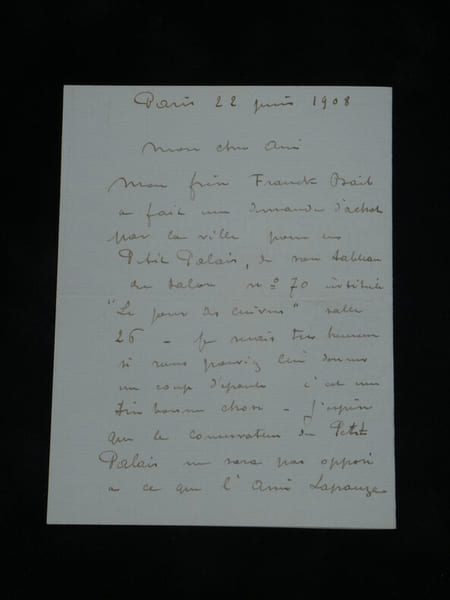 Paris 22 juin 1908
Mon cher Ami
Mon frère Franck Bail
a fait une demande d'achat
par la ville pour le
Petit Palais, de son tableau
du Salon n° 70 intitulé
"Le jour des cuivres" salle
26 - Je serais très heureux
si vous pouviez lui donner
un coup d'épaule c'est une
très bonne chose - J'espère
que le conservateur du Petit
Palais ne sera pas opposé
a ce que l'Ami Lapauze